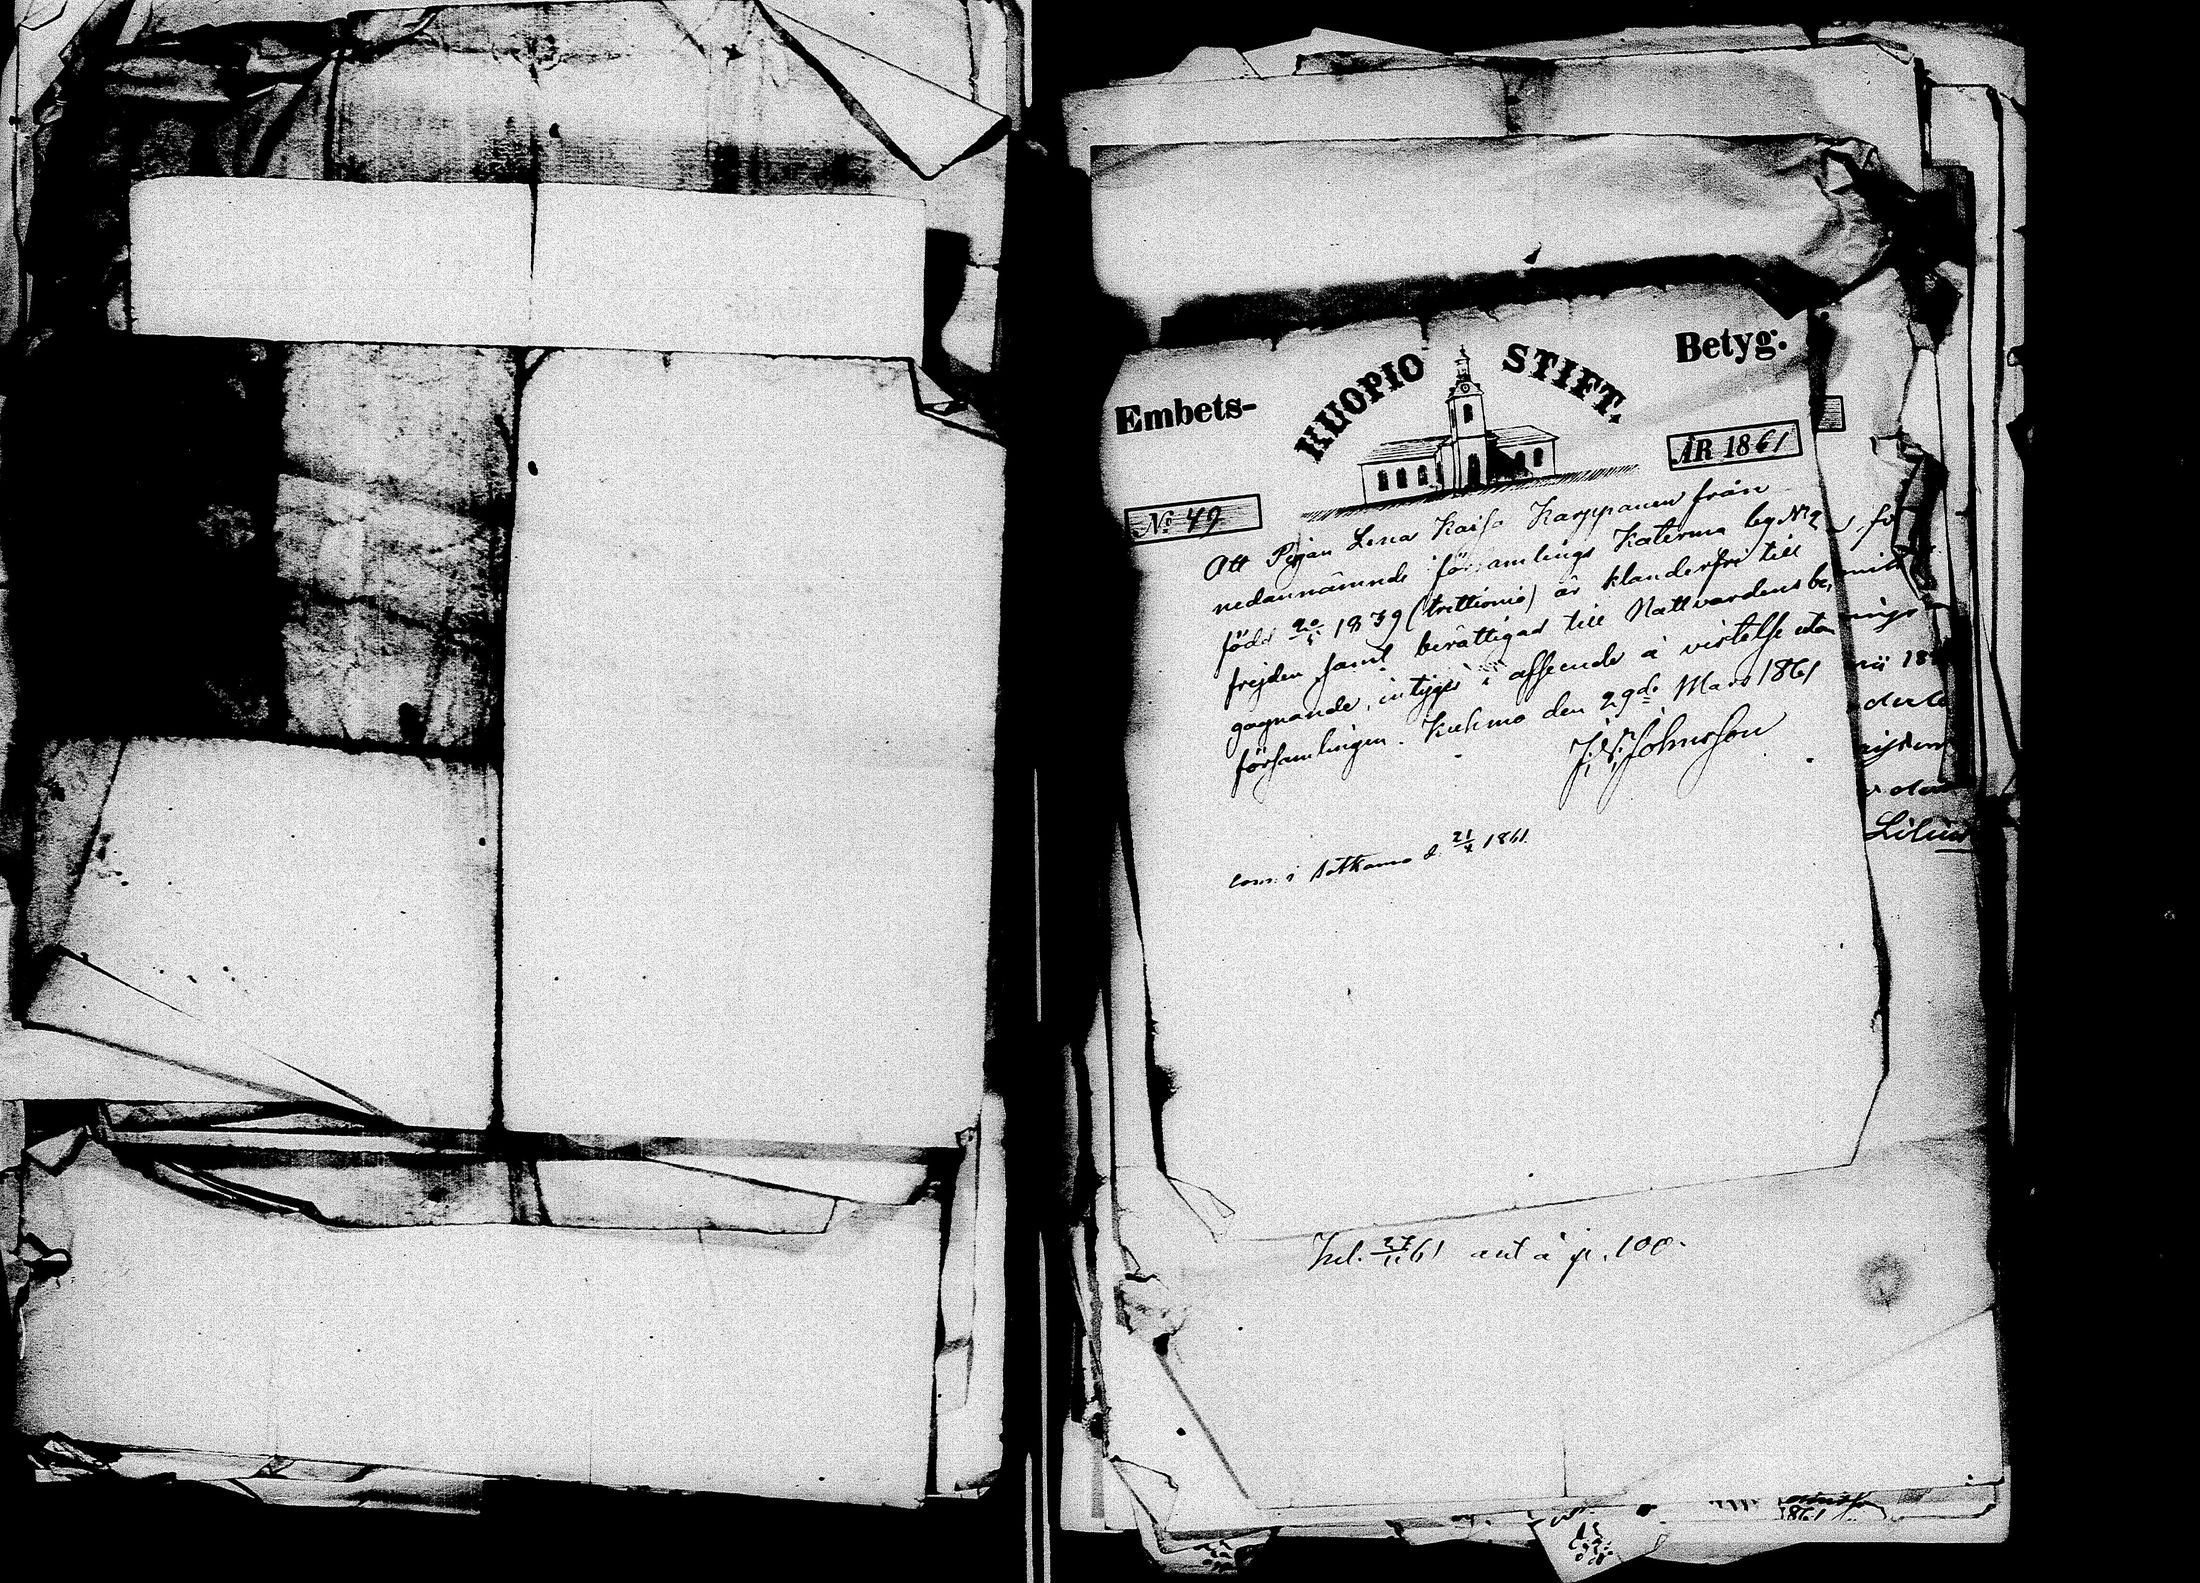 Embets-
KUOPIO STIFT.
Betyg.
ÅR 1861
No 49
Att Pigan Lena Kaisa Karppanen från
nedannämnde församlings Katerma by No 2
född 20/5 1839 (trettionio) är klanderfri till
frejden samt berättigad till Nattvardens be-
gagnande, intygas i afseende å vistelse utom
församlingen. Kuhmo den 29de Mars 1861
Johnsson
i Sotkamo d. 21/4 1861
61 ant à p. 100.